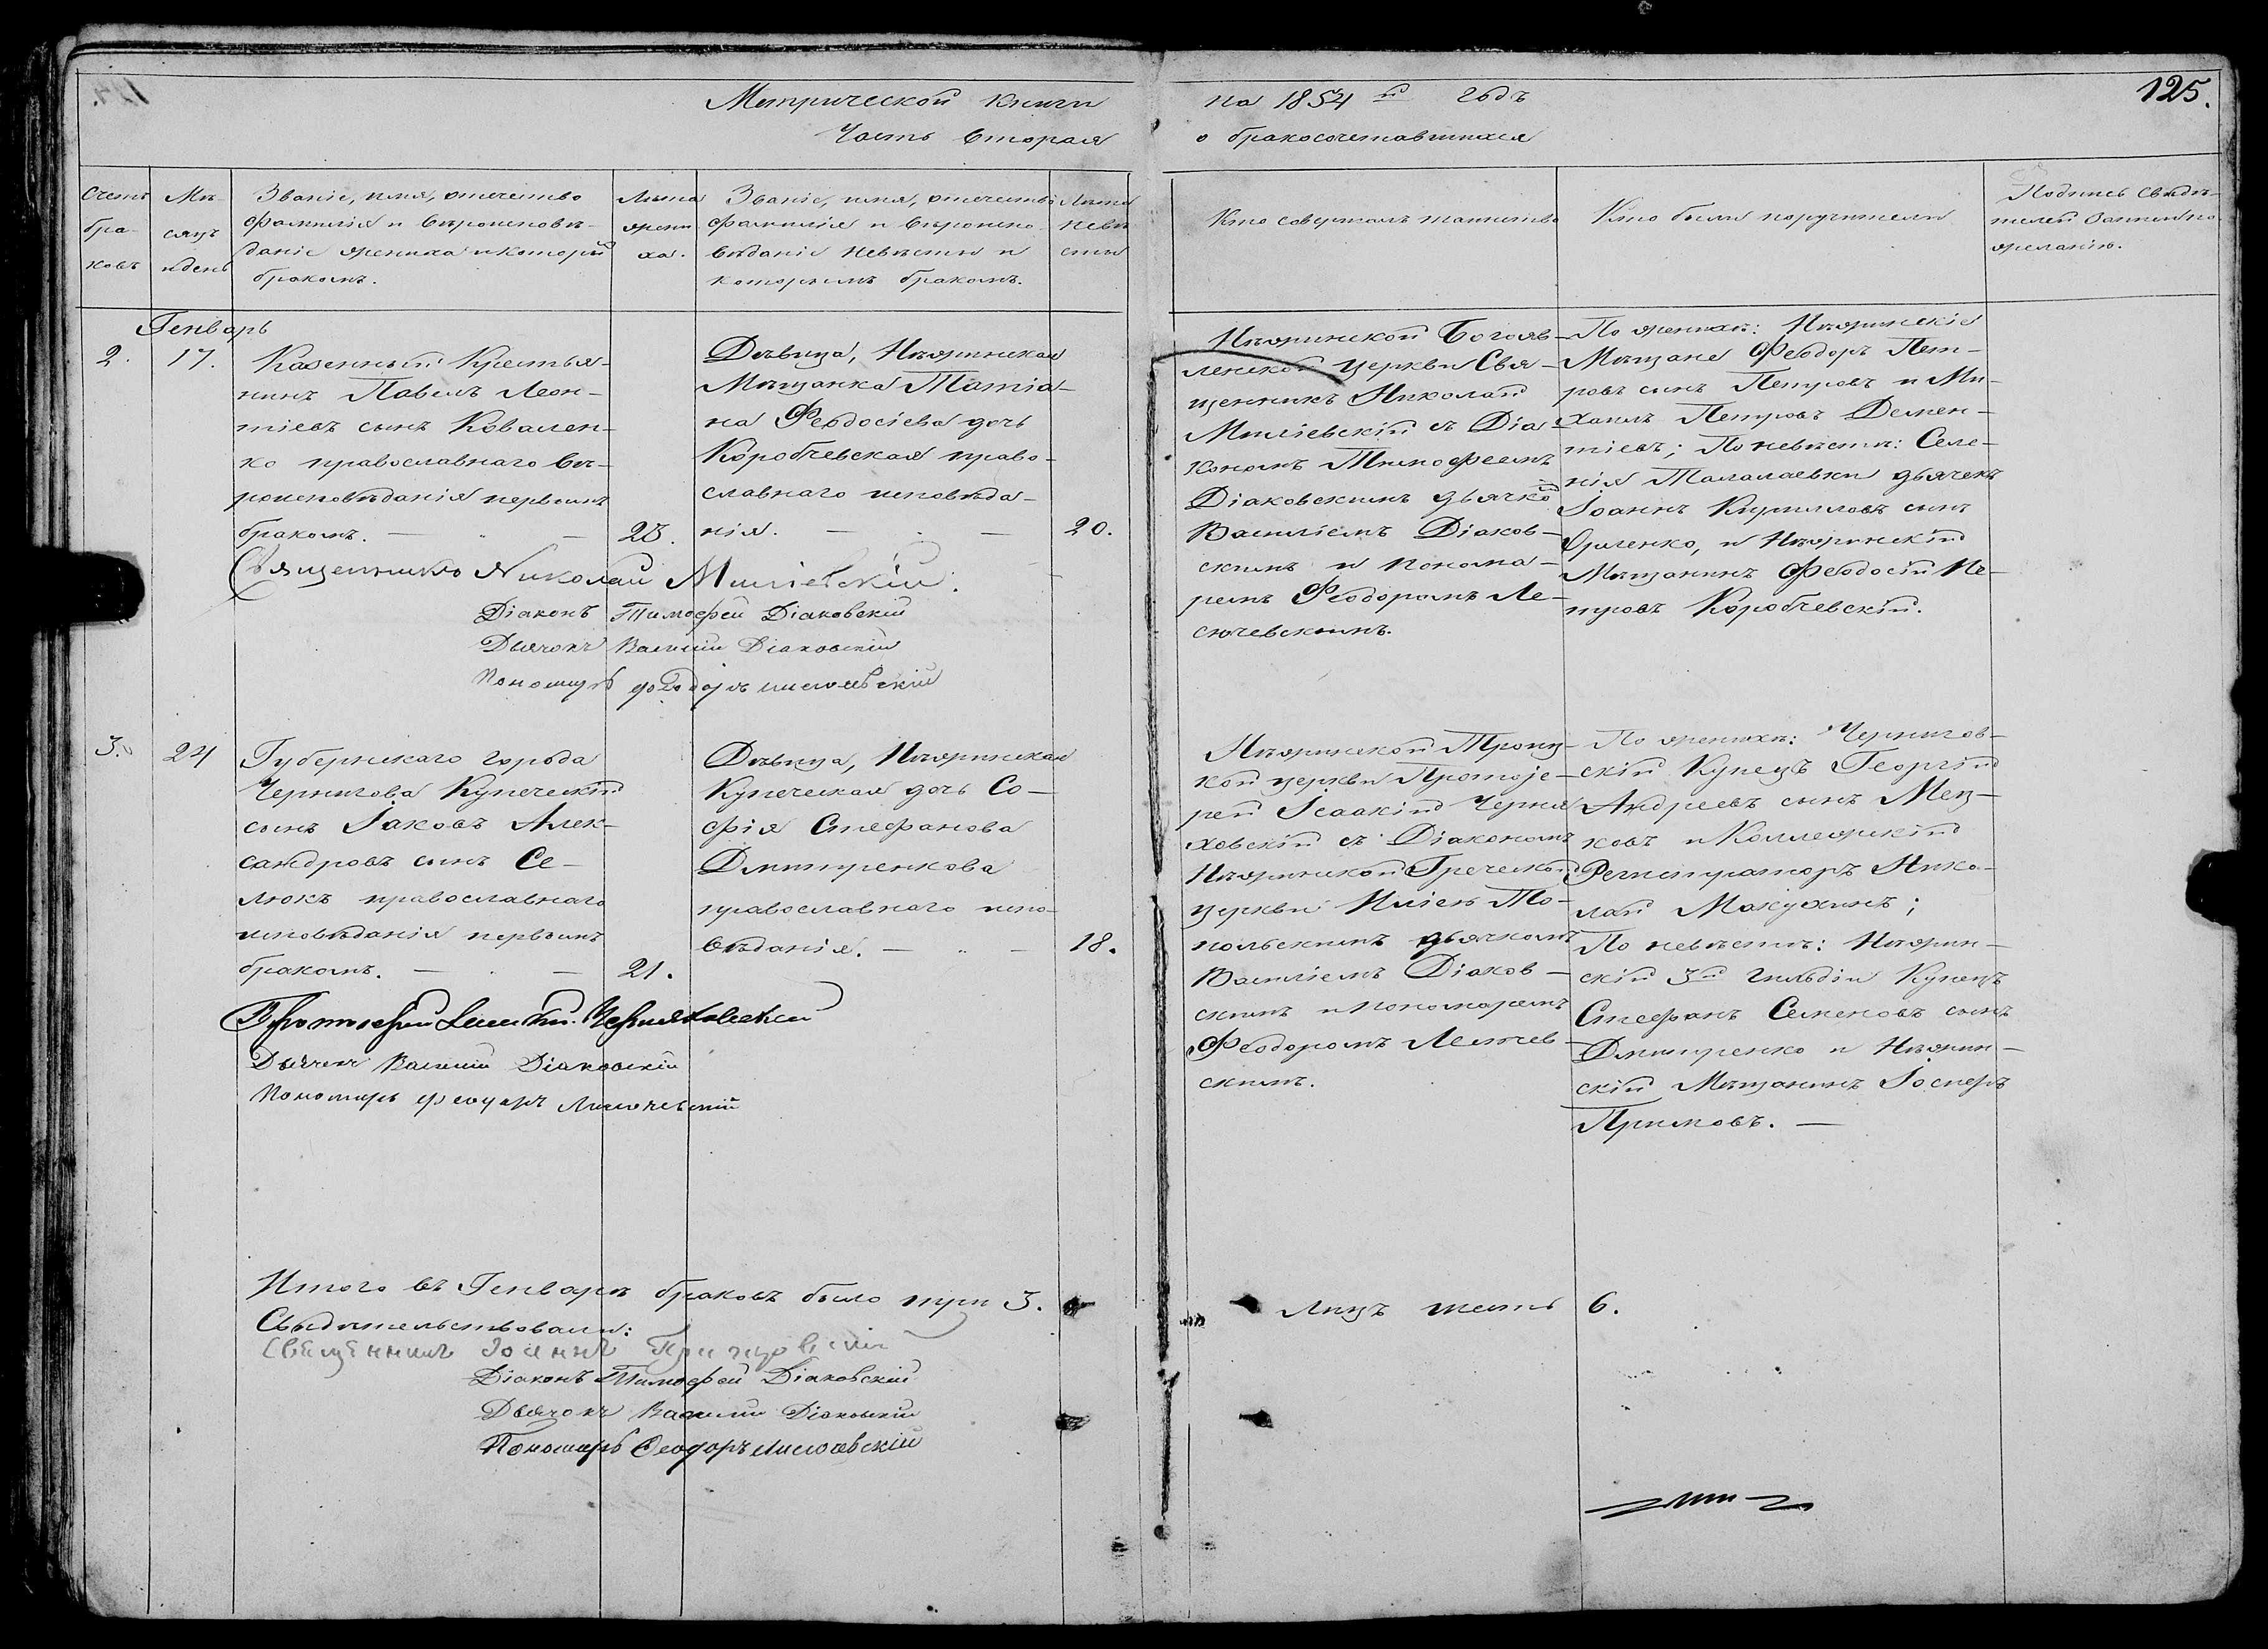 Метрической книги
Часть вторая
на 1854й годъ
о бракосочетавшихся
125.
Счетъ
бра-
ковъ
Мѣ-
сяцъ
и день
Званіе, имя, отечество
фамилія и вѣроисповѣ-
даніе жениха и которы
бракомъ.
Лѣта
жени
ха.
Званіе, имя, отечество
фамилія и вѣроиспо-
вѣданіе невѣсты и
которымъ бракомъ.
Лѣта
невѣ
сты
Кто совершалъ таинство
Кто были поручители
Подпись свидѣ-
телей записи по
желанію.
Генварь
2.
17.
Казенный Крестья-
нинъ Павелъ Леон-
тіевъ сынъ Ковален-
ко православнаго вѣ-
роисповѣданія первымъ
бракомъ.
23.
Дѣвица, Нѣжинская
Мѣщанка Татіа-
на Феодосіева дочь
Коробчевская право-
славнаго исповѣда-
нія.
20.
Нѣжинской Богояв-
ленской церкви Свя-
щенникъ Николай
Миліевскій съ Діа-
кономъ Тимофеемъ
Діаковскимъ дьячко
Василіемъ Діаков-
скимъ и понома-
ремъ Феодоромъ Ли-
сючевскимъ.
По женихѣ: Нѣжинскіе
Мѣщане Феодоръ Пет-
ровъ сынъ Петровъ и Ми-
хаилъ Петровъ Демен-
тіевъ; По невѣстѣ: Селе-
нія Талалаевки дьячекъ
Іоаннъ Кирилловъ сынъ
и Нѣжинскій
Мѣщанинъ Феодосій Пе-
тровъ Коробчевскій.
Священникъ Николай Миліевскій.
Діаконъ Тимофей Діаковскій
Дьячокъ Василій Діаковскій
Пономарь Феодоръ Лисючевскій
3.
24
Губернскаго города
Чернигова Купеческій
сынъ Іаковъ Алек-
сандровъ сынъ Се-
люкъ православнаго
исповѣданія первымъ
бракомъ.
21.
Дѣвица, Нѣжинская
Купеческая дочь Со-
фія Стефанова
Дмитренкова
православнаго испо-
вѣданія.
18.
Нѣжинской Троиц-
кой церкви Протоіе-
рей Ісаакій Черня
ховскій съ Діакономъ
Нѣжинской Греческой
церкви То-
польскимъ дьячкомъ
Василіемъ Діаков-
скимъ и пономаремъ
Феодоромъ Лисючев-
скимъ.
По женихѣ: Чернигов-
скій Купецъ Георгій
Андреевъ сынъ Мец-
ковъ и Коллежскій
Регистраторъ Нико-
лай Макухинъ;
По невѣстѣ: Нѣжин-
скій 3й гильдіи Купецъ
Стефанъ Семеновъ сынъ
Дмитренко и Нѣжин-
скій Мѣщанинъ Іосифъ
Примовъ.
Протоіерей Ісаакій Черняховскій
Дьячекъ Василій Діаковскій
Пономарь Феодоръ Лисючевскій
Итого въ Генварѣ браковъ было три 3.
Лицъ шесть 6.
Свидѣтельствовали:
Священникъ Іоаннъ
Діаконъ Тимофей Діаковскій
Дьячокъ Василій Діаковскій
Пономарь Феодоръ Лисючевскій